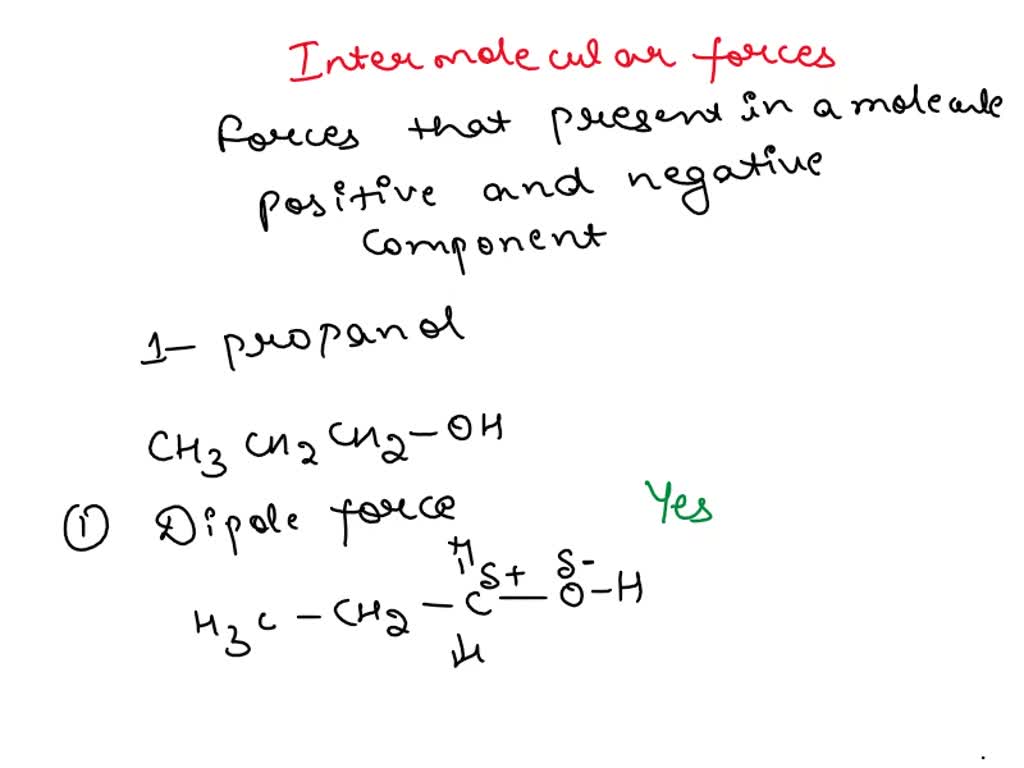 Intermolecular forces
Forces that present in a molecule
positive and negative
component
1- propanol
CH3 CH2 CH2-OH
① Dipole force Yes
H
δ+ δ-
H3C - CH2 - C - O - H
H